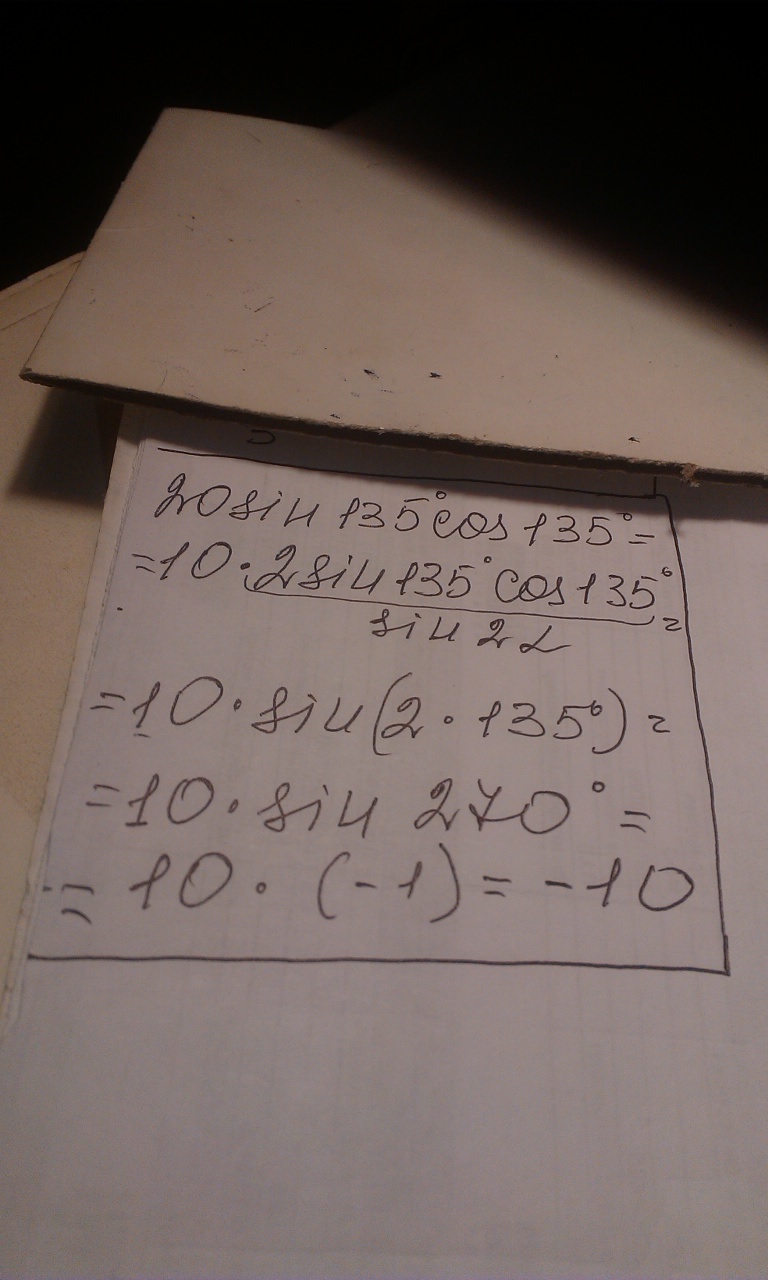 20sin135°cos135°=
=10·2sin135°cos135°=
sin2α
=10·sin(2·135°)=
=10·sin 270°=
= 10·(-1)=-10